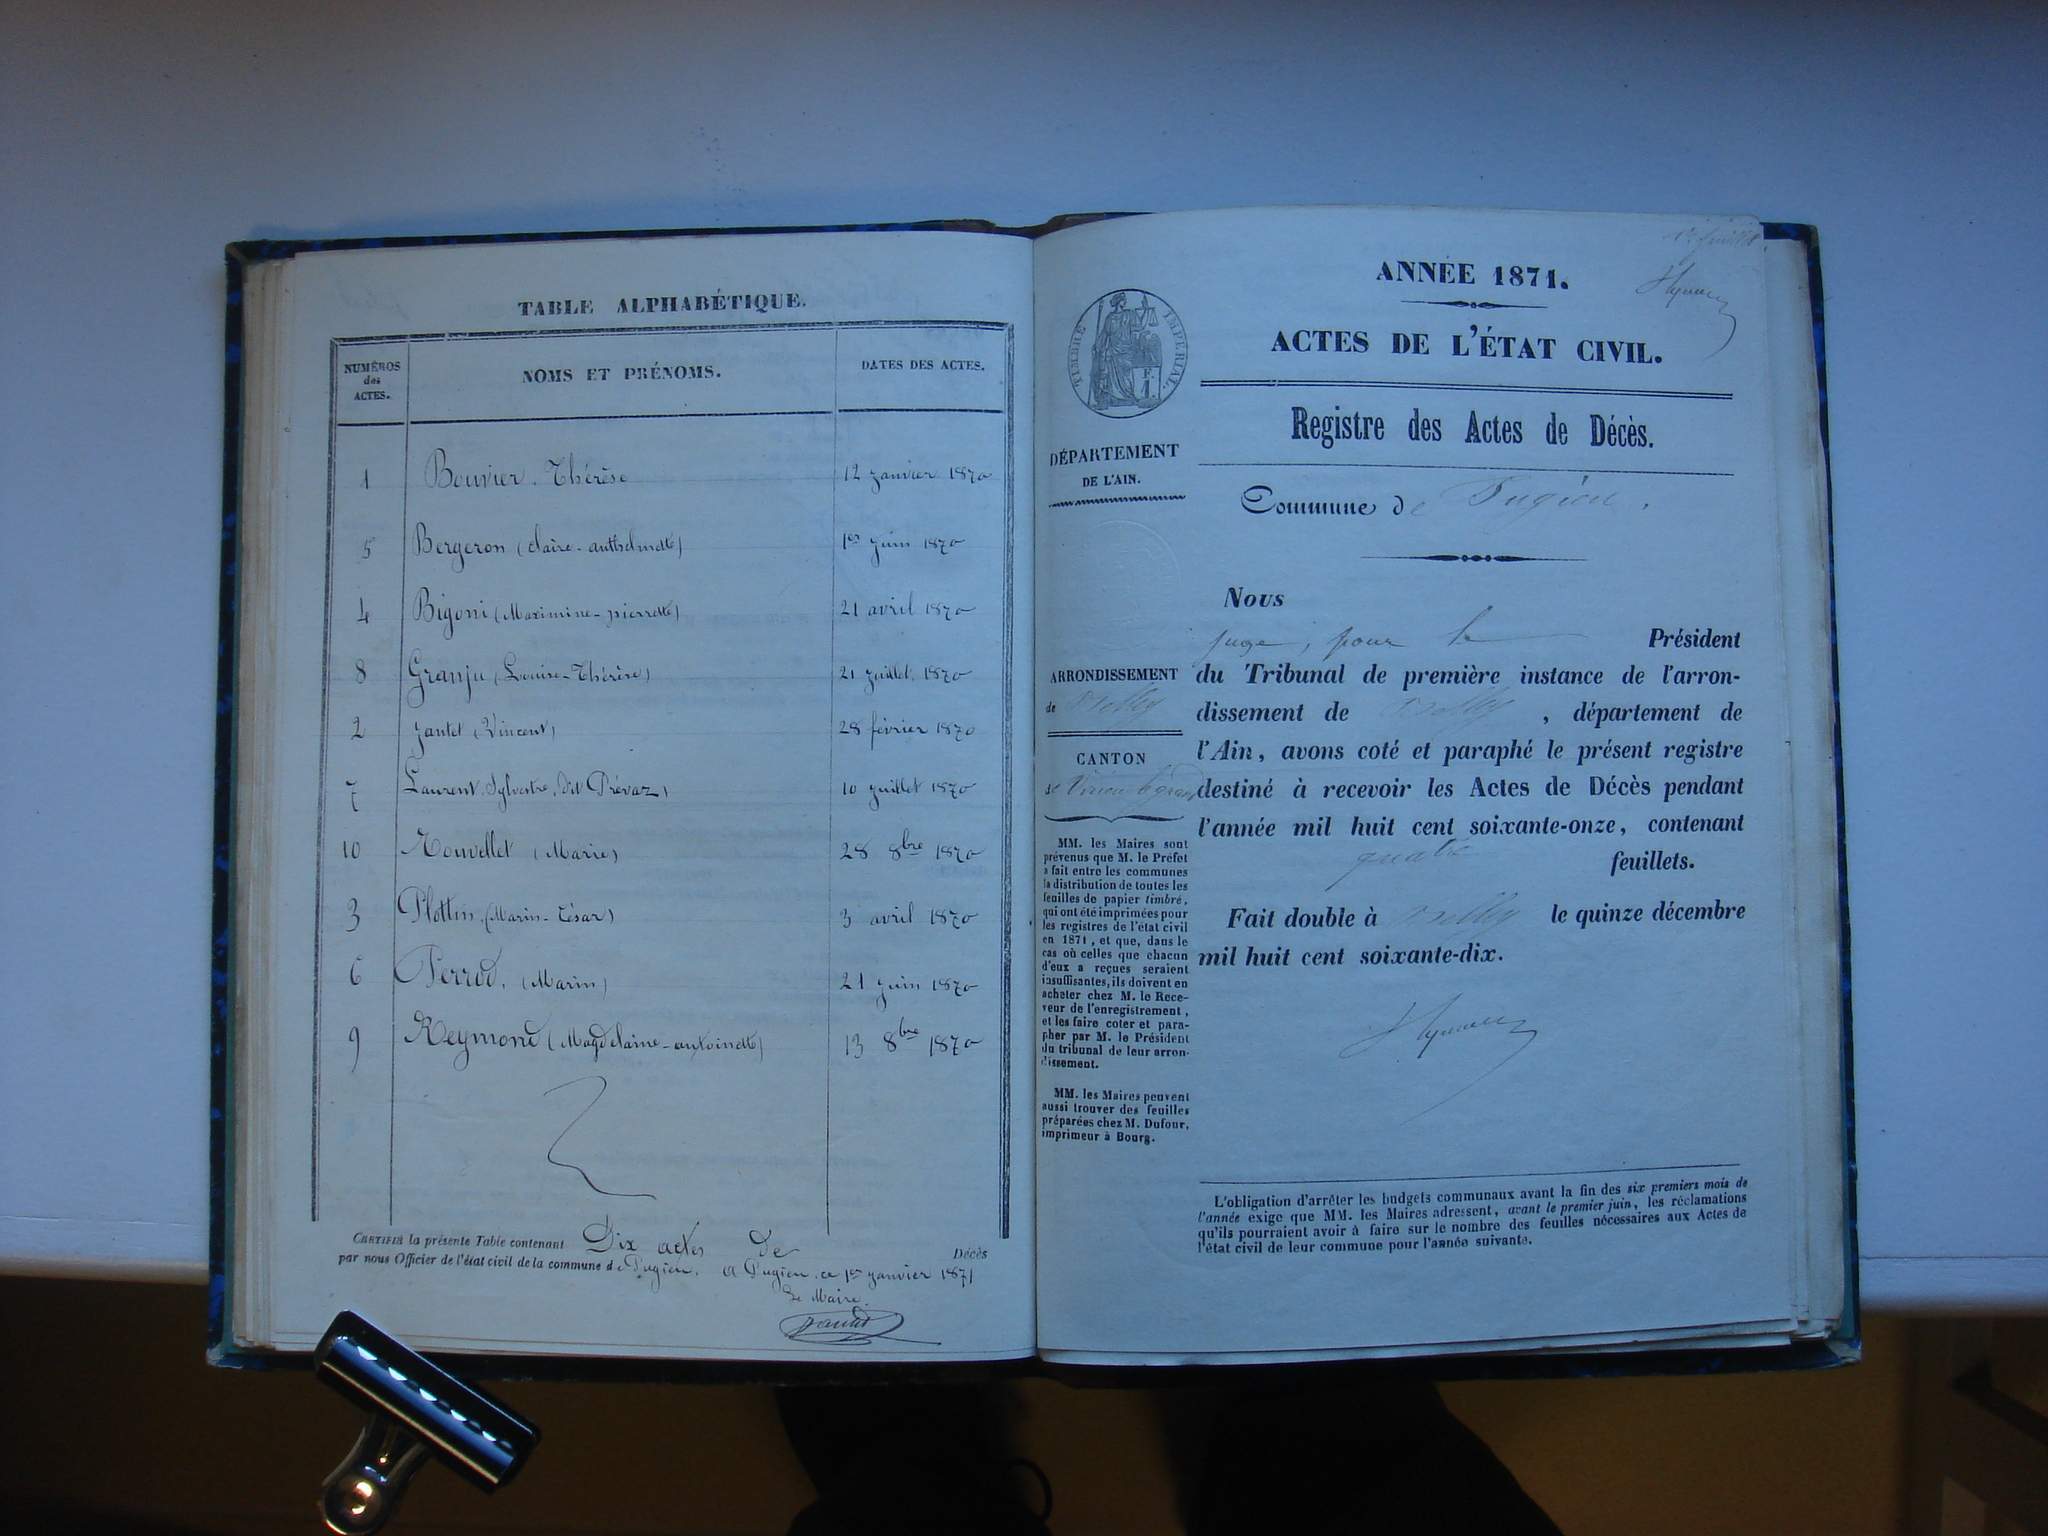 TABLE ALPHABÉTIQUE.
NUMÉROS
des
ACTES.
NOMS ET PRÉNOMS.
DATES DES ACTES.
1 Bouvier Thérèse 12 janvier 1870
5 Bergeron (claire-anthelmette) 1er juin 1870
4 Bigoni (Maximine-pierrette) 21 avril 1870
8 Granju (Louise-Thérèse) 21 juillet 1870
2 Jantet (Vincent) 28 février 1870
7 Laurent Sylvestre, dit Prévaz, 10 juillet 1870
10 Nouvellet (Marie) 28 8bre 1870
3 Plottin (Marin-César) 3 avril 1870
6 Perrod, (Marin) 21 juin 1870
9 Reymond (Magdelaine-antoinette) 13 8bre 1870
CERTIFIÉ la présente Table contenant Dix actes de Décès
par nous Officier de l'état civil de la commune de Pugieu. A Pugieu, ce 1er janvier 1871
Le Maire.
1er feuillet.
ANNÉE 1871.
TIMBRE IMPÉRIAL.
F.
1.
ACTES DE L'ÉTAT CIVIL.
Registre des Actes de Décès.
DÉPARTEMENT
DE L'AIN.
Commune de Pugieu.
ARRONDISSEMENT
de Belley
CANTON
de Virieu le grand
MM. les Maires sont
prévenus que M. le Préfet
a fait entre les communes
la distribution de toutes les
feuilles de papier timbré,
qui ont été imprimées pour
les registres de l'état civil
en 1871, et que, dans le
cas où celles que chacun
d'eux a reçues seraient
insuffisantes, ils doivent en
acheter chez M. le Rece-
veur de l'enregistrement,
et les faire coter et para-
pher par M. le Président
du tribunal de leur arron-
dissement.
MM. les Maires peuvent
aussi trouver des feuilles
préparées chez M. Dufour,
imprimeur à Bourg.
Nous
juge, pour le Président
du Tribunal de première instance de l'arron-
dissement de Belley, département de
l'Ain, avons coté et paraphé le présent registre
destiné à recevoir les Actes de Décès pendant
l'année mil huit cent soixante-onze, contenant
quatre feuillets.
Fait double à Belley le quinze décembre
mil huit cent soixante-dix.
L'obligation d'arrêter les budgets communaux avant la fin des six premiers mois de
l'année exige que MM. les Maires adressent, avant le premier juin, les réclamations
qu'ils pourraient avoir à faire sur le nombre des feuilles nécessaires aux Actes de
l'état civil de leur commune pour l'année suivante.